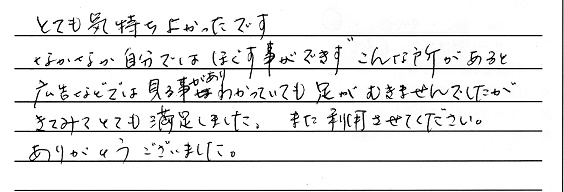 とても気持ちよかったです
なかなか自分ではほぐす事ができず こんな所があると
広告などでは見る事がありわかっていても足がむきませんでしたが
きてみてとても満足しました。 また利用させてください。
ありがとうございました。